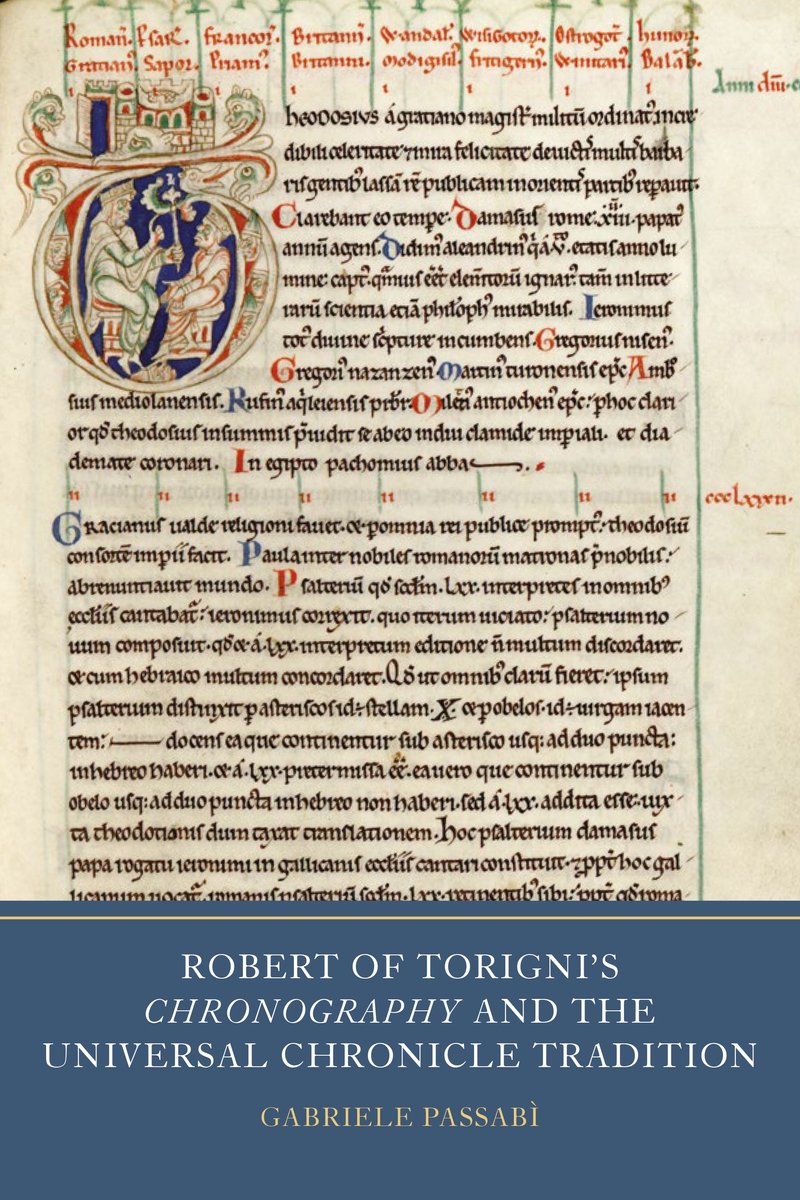 Romanoꝝ. Pſaꝝ. francoꝝ. Britannoꝝ. Wandaloꝝ. Wiſigotoꝝ. Oſtrogotoꝝ. hunoꝝ.
Gratianꝰ. Sapor. Priamꝰ. Britanni. Modigiſilꝰ. fritigernꝰ. Winitariꝰ. Balāb.
i i i i i i i i
heodosius á gratiano magiſt militū ordinatꝰ incre
dibili celeritate ⁊ mira felicitate deuictis multis barba
ris gentibꝰ laſſā rē publicam in orientis partibꝰ reparauit.
Clarebant eo tempe. Damaſus rome papatꝰ
annū agens. Didimꝰ etatis anno lu
mine captꝰ elemtorū ignarꝰ tam in litte
rarū ſcientia etiā philoſophꝰ mirabilis. Ieronimus
totꝰ diuine ſcpture incumbens. Gregorius niſenꝰ.
Gregoriꝰ nazanzenꝰ. Martinꝰ turonenſis epc Amb
ſius mediolanenſis. Rufinꝰ aqleienſis pꝛbꝛ. antiochenꝰ epc
theodoſius in ſomnis uidit ſe ab eo indui clamide impiali. et dia
demate coronari. In egipto pachomius abba
ii ii ii ii ii ii ii ii ccclxxxii.
Gracianus ualde religioni fauet. ⁊ p omnia rei publice promptꝰ. theodoſiū
conſortē impii facit. Paula inter nobiles romanorū matronas pnobilis
abrenuntiauit mundo. Pſalteriū qd ſcdm .lxx. interpretes in omnibꝰ
eccliis cantabat. ieronimus correxit. quo iterum uiciato. pſalterium no
uum compoſuit. qd ⁊ á .lxx. interpretum editione n multum diſcordaret.
⁊ cum hebraico multum concordaret. Qd ut omnibꝰ clarū fieret. ipſum
pſalterium diſtinxit p aſteriſcos id ſtellam. X ⁊ p obelos. id uirgam iacen
tem: docens ea que continentur ſub aſteriſco uſq: ad duo puncta:
in hebreo haberi. ⁊ á .lxx. pretermiſſa ēē. ea uero que continentur ſub
obelo uſq: ad duo puncta in hebreo non haberi. ſed á .lxx. addita eſſe. iux
ta theodotionis dum taxat tranſlationem. Hoc pſalterium damaſus
papa rogatu ieronimi in gallicanis eccliis cantari conſtituit. ⁊ ppt hoc gal
licanum uocat
ROBERT OF TORIGNI’S
CHRONOGRAPHY AND THE
UNIVERSAL CHRONICLE TRADITION
GABRIELE PASSABÌ